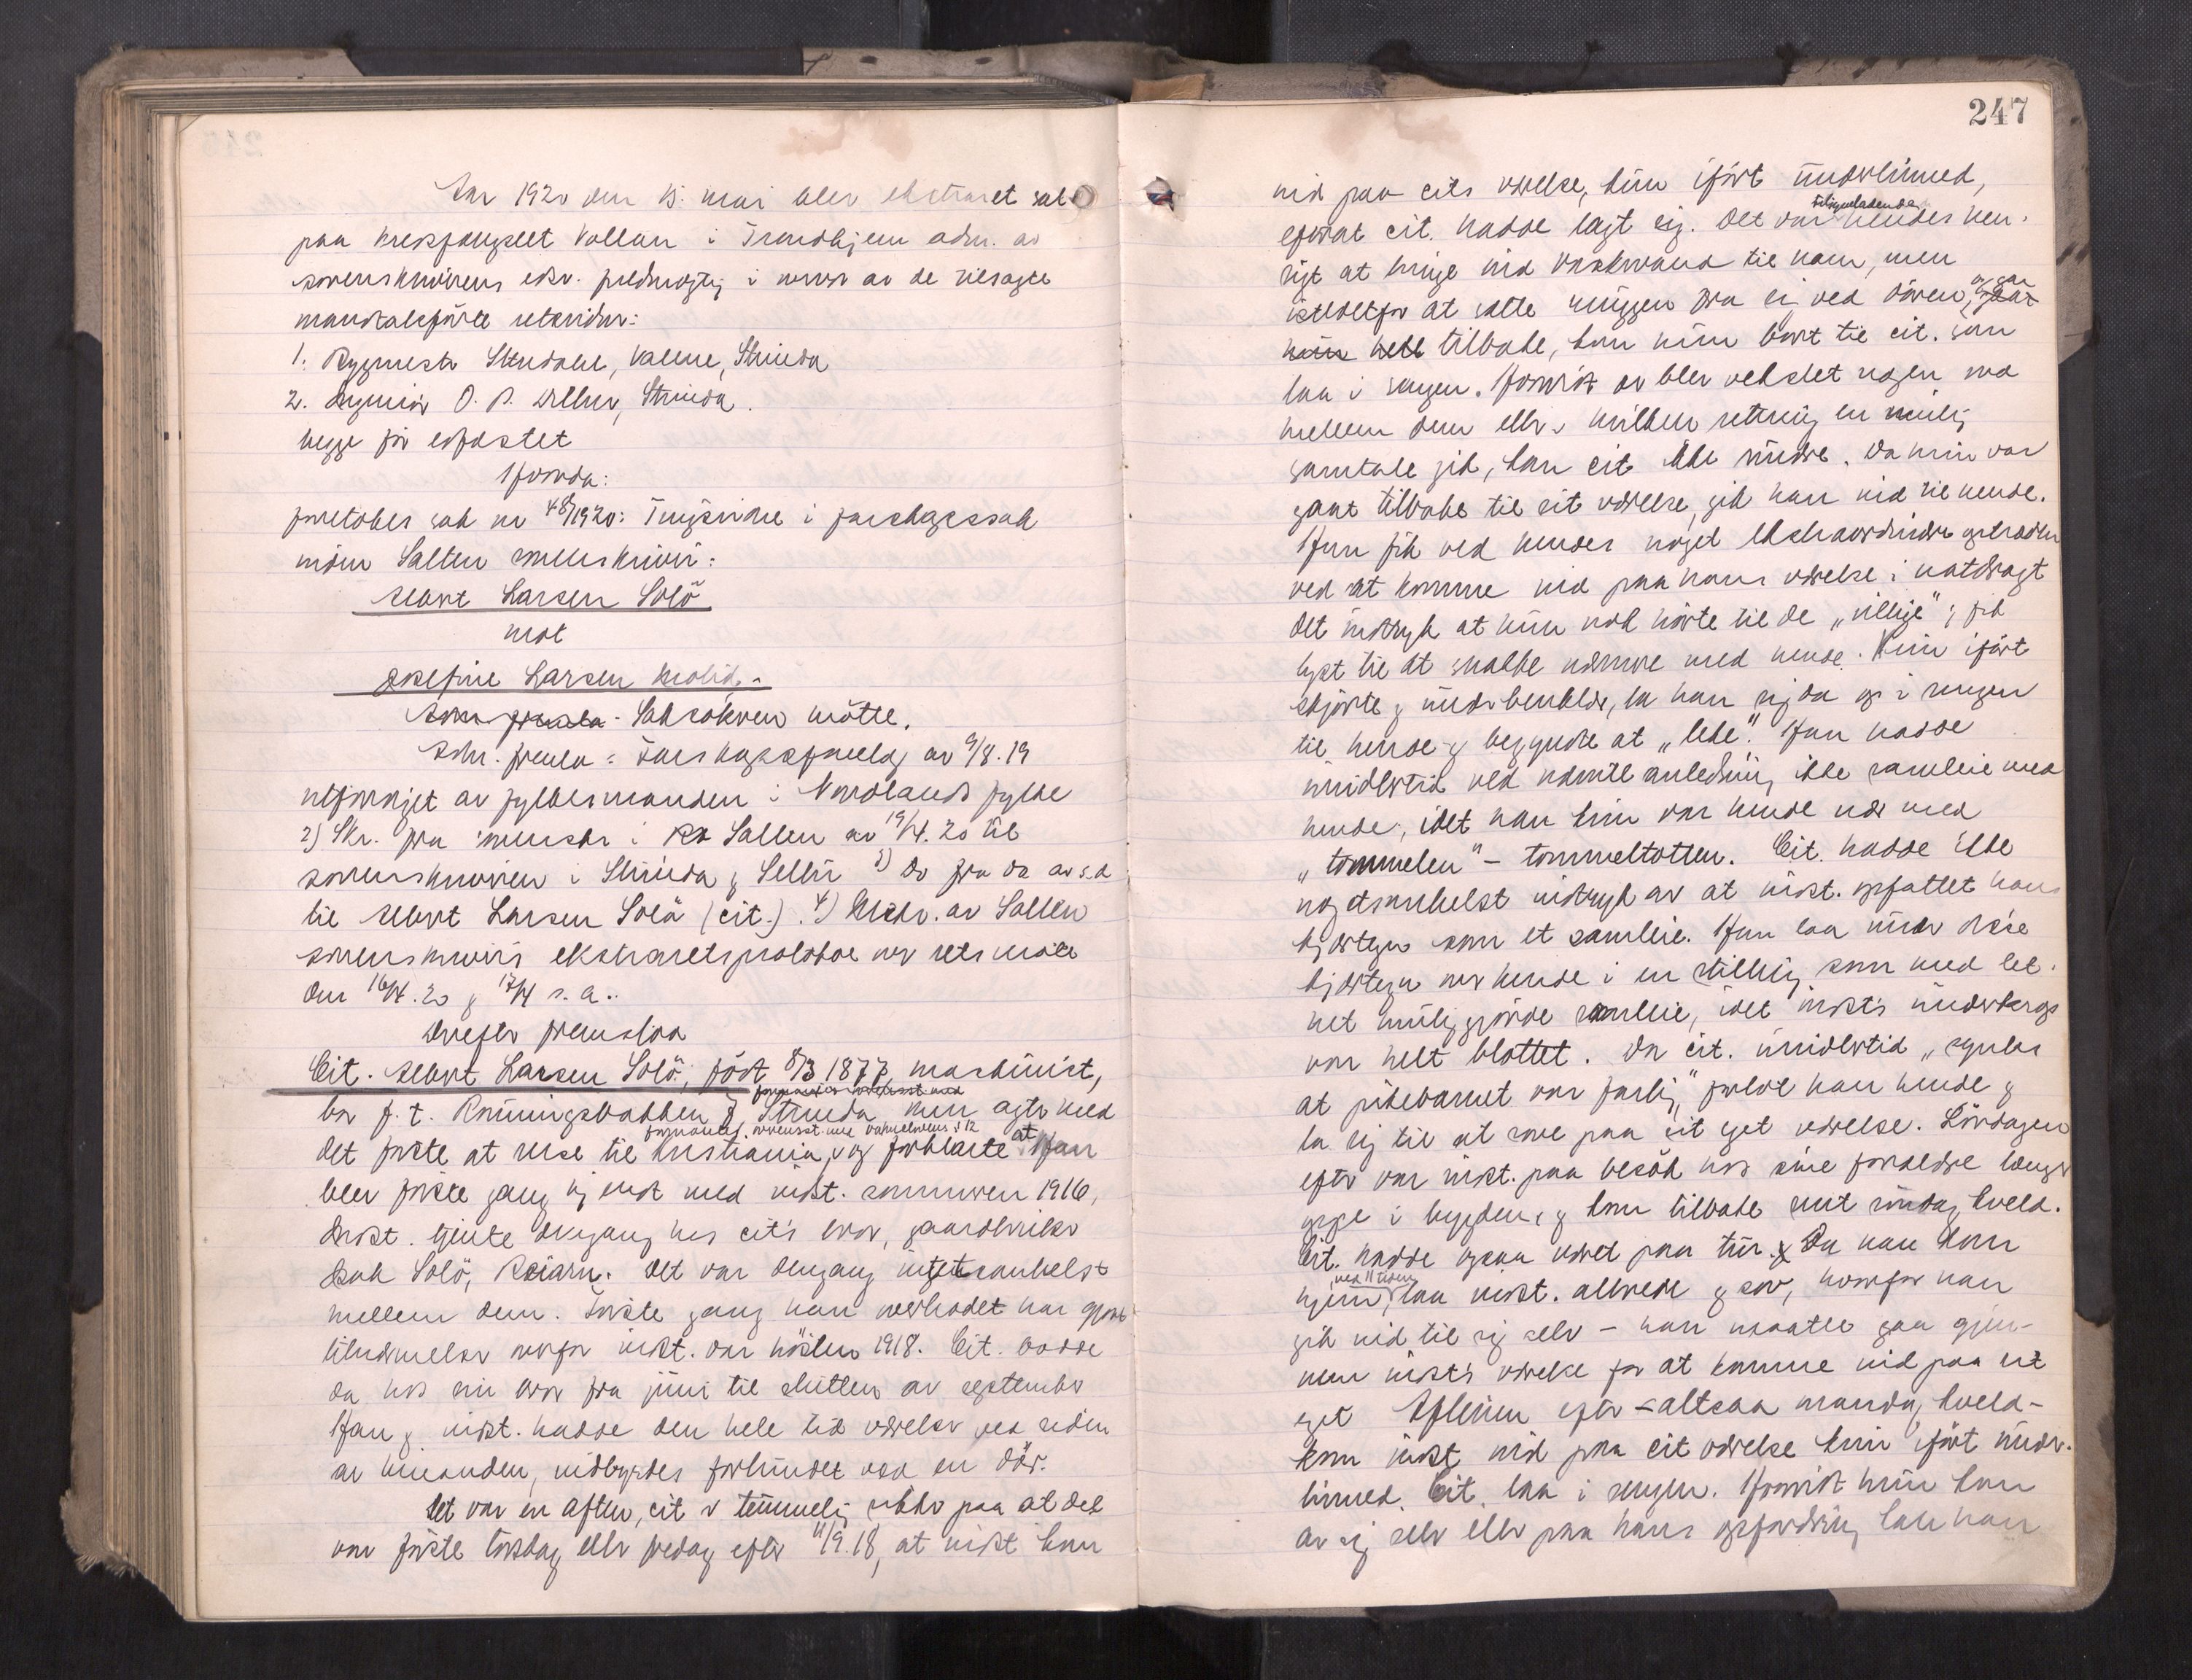 Aar 1920 den 15. mai blev ekstraret sat
paa kredsfængslet Vollan i Trondhjem adm. av
sorenskriverens edsv. fuldmægtig i nærvær av de tilsagte
mandtalsførte retsvidner:
1. Stendahl, Strinda
2. O. P. Strinda.
begge før edfæstet
Hvorda:
foretokes sak nr 48/1920: Tingsvidne i farskapssak
inden Salten sorenskriveri:
Larsen Solö
mot
Josefine Larsen
Saksökeren mötte.
Adm. fremla: Farskapsforelæg av 9/8.19
utfærdiget av fylkesmanden i Nordlands fylke
2) Skr. fra sorenskr. i Salten av 19/4.20 til
sorenskriveren i Strinda & Selbu 3) Do fra do av s.d
til Larsen Solö (cit.). 4) Utskr. av Salten
sorenskriveris ekstraretsprotokol over retsmöte
den 16/4.20 & 17/4 s.a..
Derefter fremstaa
Cit. Larsen Solö, födt 8/3 1877, maskinist,
bor p.t. Strinda, men agter med
det förste at reise til Kristiania, og forklarte at Han
blev förste gang kjendt med indst. sommeren 1916,
Indst. tjente dengang hos cit's bror, gaardbruker
Solö, Det var dengang intetsomhelst
mellem dem. Förste gang han overhodet har gjort
tilnærmelser overfor indst. var hösten 1918. Cit. bodde
da hos sin bror fra juni til slutten av september
Han & indst. hadde den hele tid værelser ved siden
av hinanden, indbyrdes forbundet ved en dör.
Det var en aften, cit er temmelig sikker paa at det
var förste torsdag eller fredag efter 11/9.18, at indst kom
247
ind paa cits værelse, kun iført underlinned,
efterat cit. hadde lagt sig. Det var tilsyneladende hendes hen-
sigt at bringe ind vaskevand til ham, men
istedetfor at sætte muggen fra sig ved dören, og gaa
tilbake, kom hun bort til cit. som
laa i sengen. Hvorvidt der blev vekslet nogen ord
mellem dem eller i hvilken retning en mulig
samtale gik, kan cit ikke mindre. Da hun var
gaat tilbake til sit værelse, gik han ind til hende.
Han fik ved hendes noget ekstraordinære optræden
ved at komme ind paa hans værelse i natdragt
det indtryk at hun nok hörte til de „villige"; fik
lyst til at snakke nærmere med hende. Kun iført
skjorte & underbenklær, la han sig da op i sengen
til hende & begyndte at „leke". Han hadde
imidlertid ved nævnte anledning ikke samleie med
hende, idet han kun var hende nær med
„tommelen" – tommeltotten. Cit. hadde ikke
nogetsomhelst indtryk av at indst. opfattet hans
kjærtegn som et samleie. Han laa under disse
kjærtegn over hende i en stilling som med let-
het muliggjorde samleie, idet indst's underkrop
var helt blottet. Da cit. imidlertid „syntes
at pikebarnet var farlig," forlot han hende &
la sig til at sove paa sit eget værelse. Lördagen
efter var indst. paa besök hos sine forældre længer
oppe i bygden, & kom tilbake sent söndag kveld.
Cit. hadde ogsaa været paa tur. Da han kom
hjem, ved 11 tiden laa indst. allerede & sov, hvorfor han
gik ind til sig selv – han maatte gaa gjen-
nem indst's værelse for at komme ind paa sit
eget Aftenen efter – altsaa mandag kveld –
kom indst ind paa cit værelse kun iført under-
linned. Cit. laa i sengen. Hvorvidt hun kom
av sig selv eller paa hans opfordring kan han